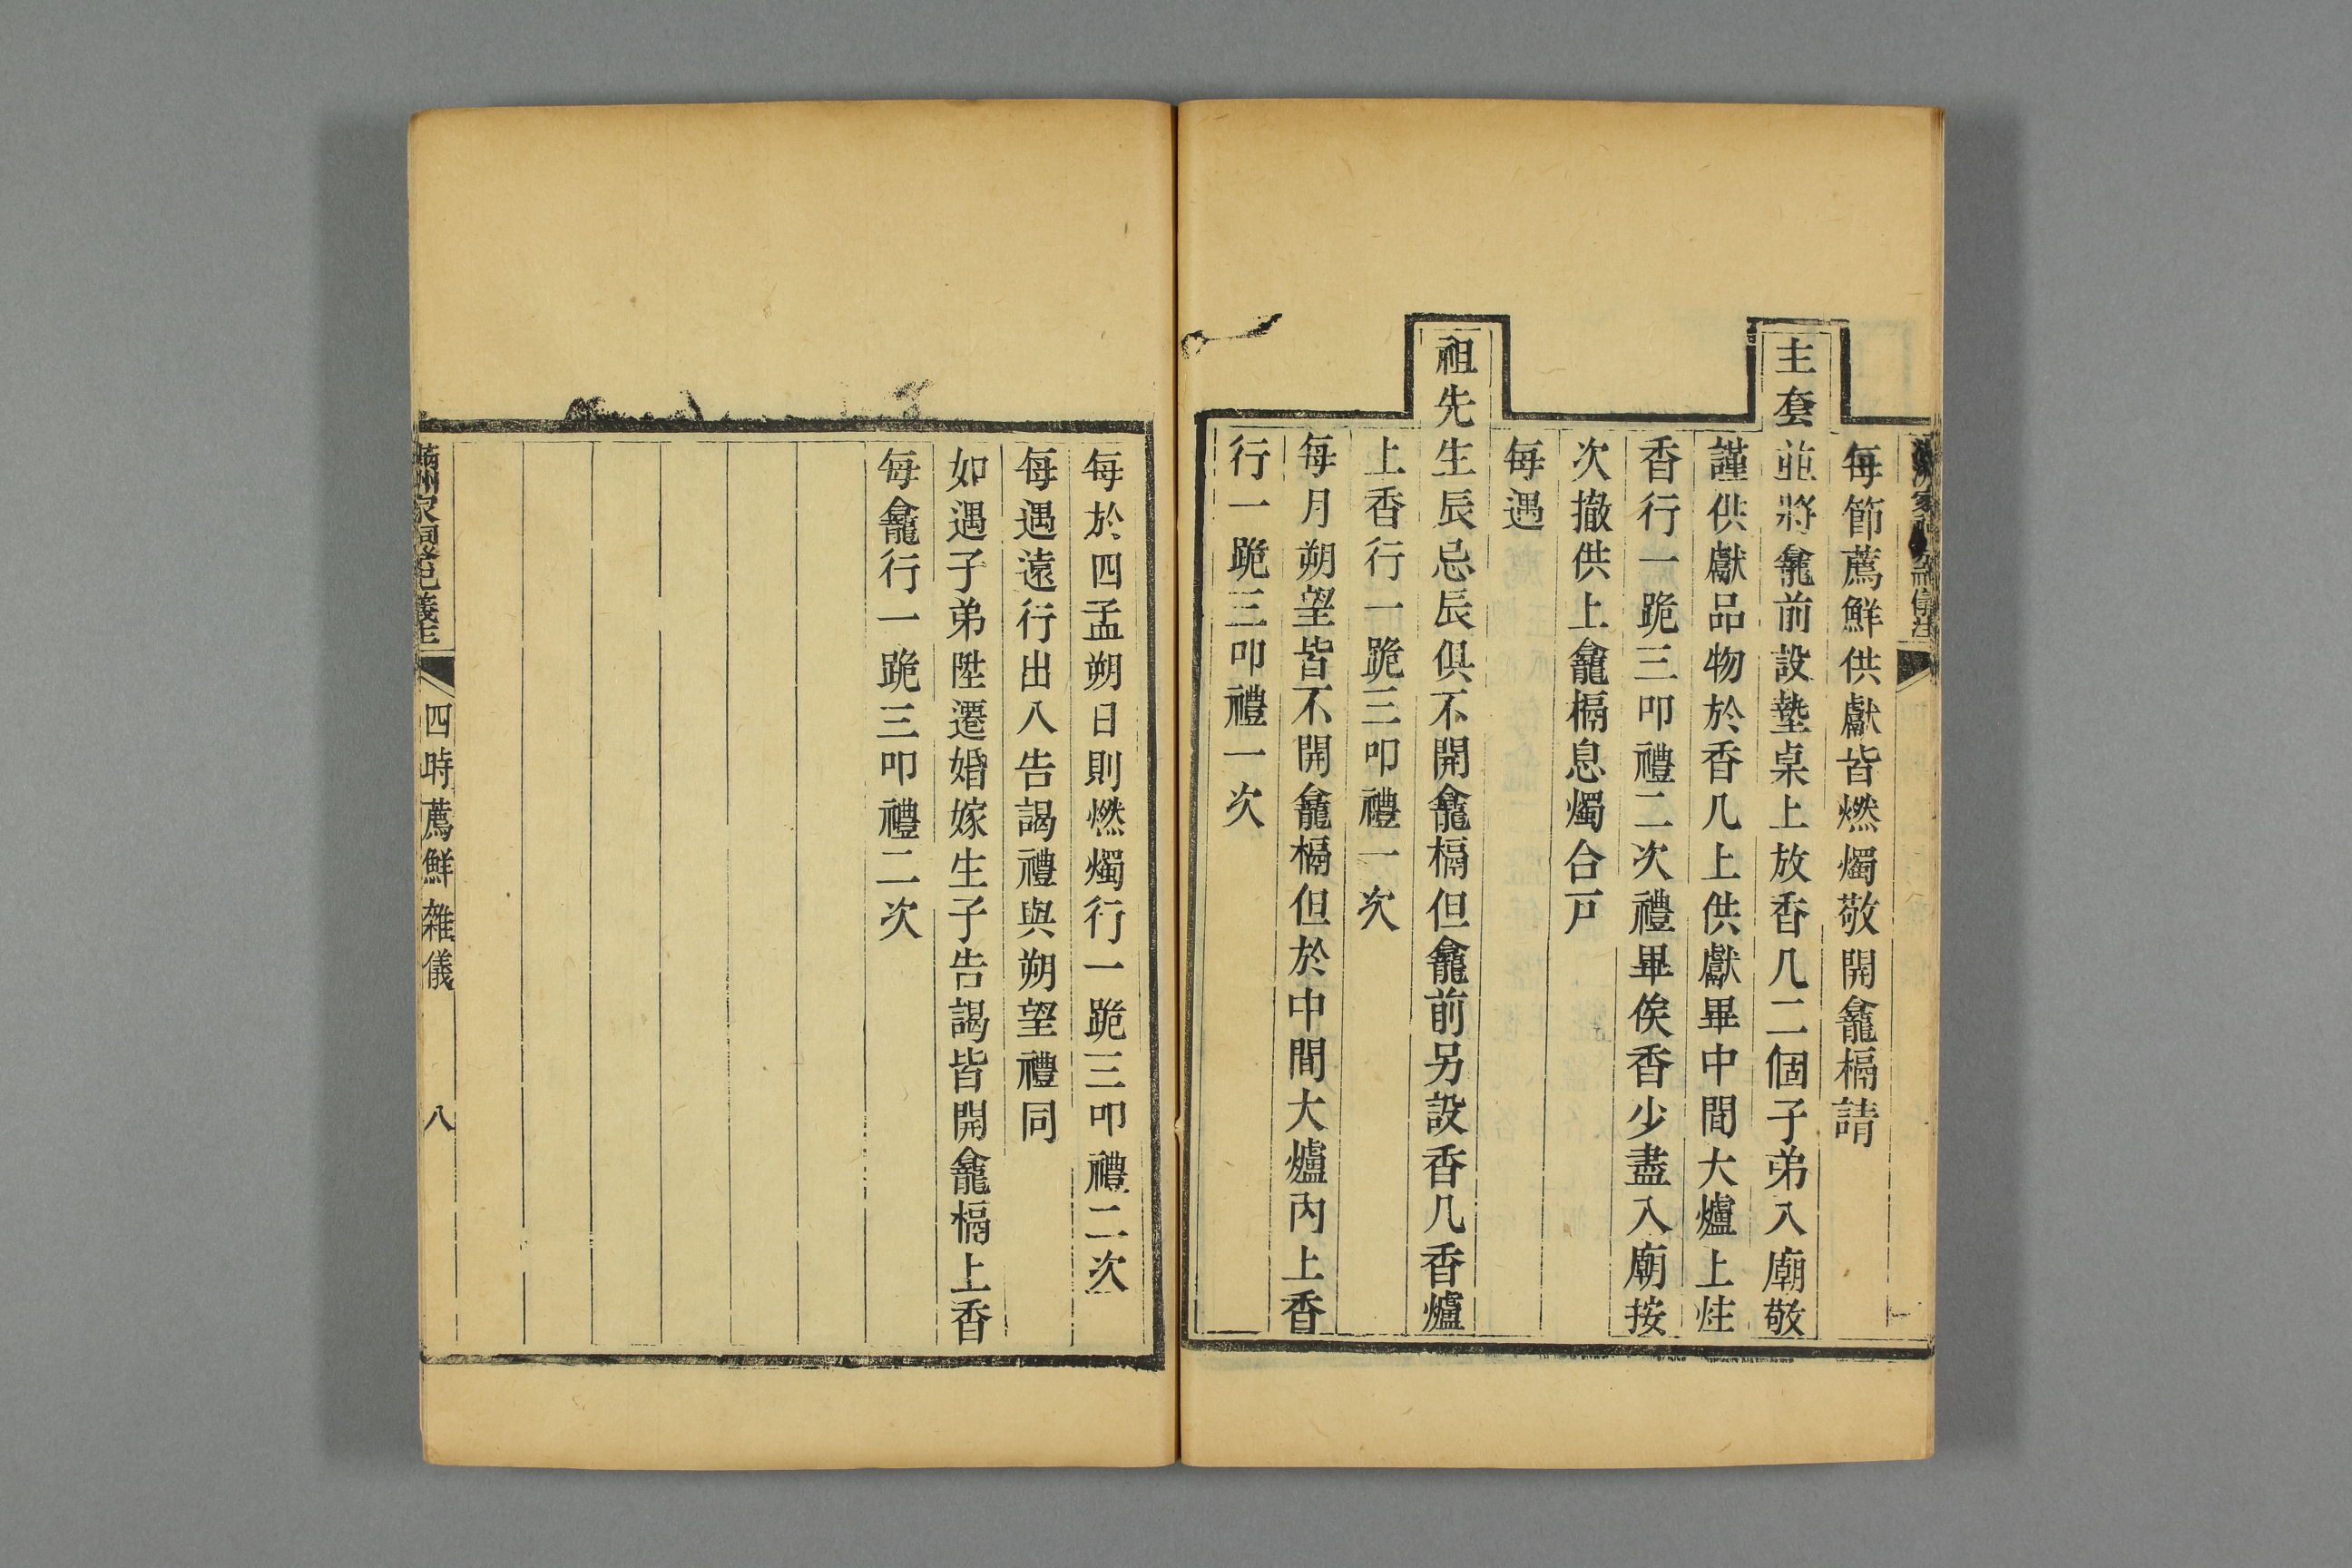 每節薦鮮供獻皆燃燭敬開龕槅請
主套並將龕前設墊桌上放香几二個子弟入廟敬
謹供獻品物於香几上供獻畢中間大爐上炷
香行一跪三叩禮二次禮畢俟香少盡入廟按
次撤供上龕槅息燭合戸
每遇
祖先生辰忌辰俱不開龕槅但龕前另設香几香爐
上香行一跪三叩禮一次
每月朔望皆不開龕槅但於中間大爐內上香
行一跪三叩禮一次
每於四孟朔日則燃燭行一跪三叩禮二次
每遇遠行出入告謁禮與朔望禮同
如遇子弟陞遷婚嫁生子告謁皆開龕槅上香
每龕行一跪三叩禮二次
四時薦鮮雜儀
八